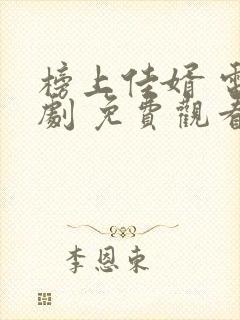 榜上佳婿
劇 免費觀
李恩東